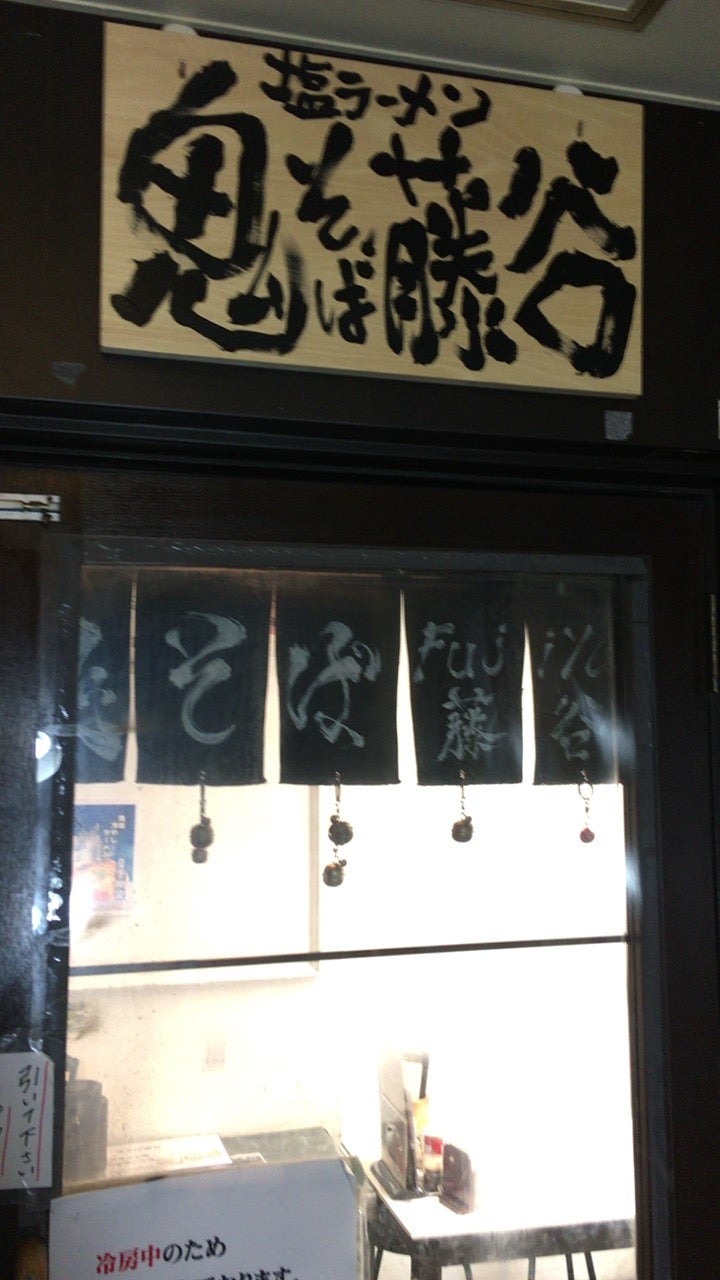 塩ラーメン
鬼そば藤谷
そば Fuji
藤谷
引いて下さい
冷房中のため
ております。